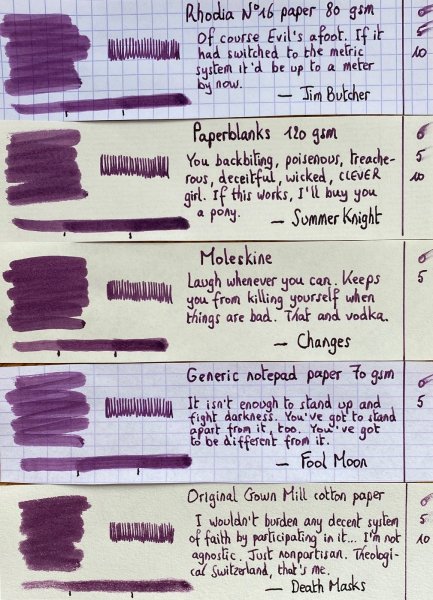 Rhodia N°16 paper 80 gsm
Of course Evil's afoot. If it
had switched to the metric
system it'd be up to a meter
by now.
— Jim Butcher
0
5
10
Paperblanks 120 gsm
You backbiting, poisenous, treache-
rous, deceitful, wicked, CLEVER
girl. If this works, I'll buy you
a pony.
— Summer Knight
0
5
10
Moleskine
Laugh whenever you can. Keeps
you from killing yourself when
things are bad. That and vodka.
— Changes
0
5
Generic notepad paper 70 gsm
It isn't enough to stand up and
fight darkness. You've got to stand
apart from it, too. You've got
to be different from it.
— Fool Moon
0
5
Original Crown Mill cotton paper
I wouldn't burden any decent system
of faith by participating in it... I'm not
agnostic. Just nonpartisan. Theologi-
cal Switzerland, that's me.
— Death Masks
0
5
10